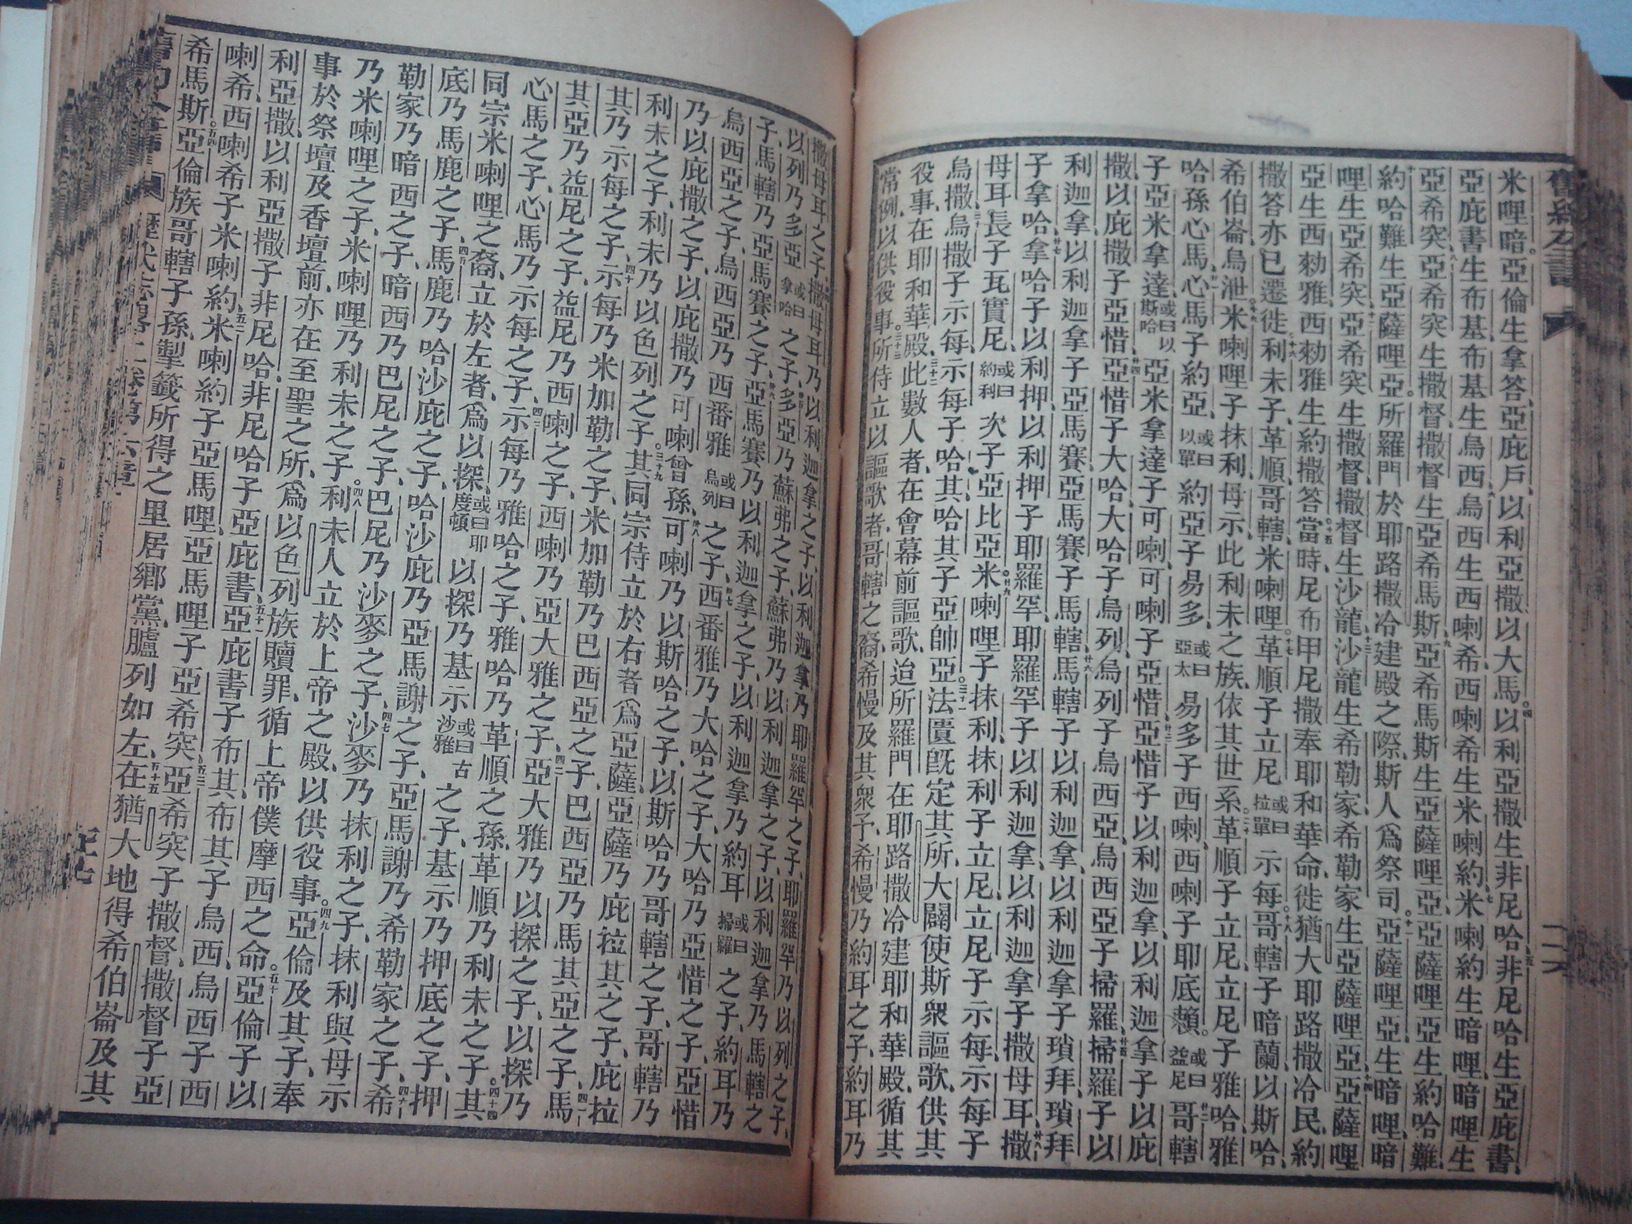 米哩暗。亞倫生拿答、亞庇戶、以利亞撒、以大馬。以利亞撒生非尼哈、非尼哈生亞庇書、
亞庇書生布基、布基生烏西、烏西生西喇希、西喇希生米喇約、米喇約生暗哩、暗哩生
亞希突、亞希突生撒督、撒督生亞希馬斯、亞希馬斯生亞薩哩亞、亞薩哩亞生約哈難、
約哈難生亞薩哩亞。所羅門於耶路撒冷建殿之際、斯人為祭司。亞薩哩亞生暗哩、暗
哩生亞希突、亞希突生撒督、撒督生沙龍、沙龍生希勒家、希勒家生亞薩哩亞、亞薩哩
亞生西勑雅、西勑雅生約撒答。當時尼布甲尼撒奉耶和華命、徙猶大耶路撒冷民、約
撒答亦已遷徙。利未子革順、哥轄、米喇哩。革順子立尼、或曰拉單示每。哥轄子暗蘭、以斯哈、
希伯崙、烏泄。米喇哩子抹利、母示。此利未之族、依其世系。革順子立尼、立尼子雅哈、雅
哈孫心馬、心馬子約亞、或曰以單約亞子易多、或曰亞太易多子西喇、西喇子耶底賴。或曰益尼哥轄
子亞米拿達、或曰以斯哈亞米拿達子可喇、可喇子亞惜、亞惜子以利迦拿、以利迦拿子以庇
撒、以庇撒子亞惜、亞惜子大哈、大哈子烏列、烏列子烏西亞、烏西亞子掃羅、掃羅子以
利迦拿、以利迦拿子亞馬賽、亞馬賽子馬轄、馬轄子以利迦拿、以利迦拿子瑣拜、瑣拜
子拿哈、拿哈子以利押、以利押子耶羅罕、耶羅罕子以利迦拿、以利迦拿子撒母耳、撒
母耳長子瓦實尼、或曰約利次子亞比亞。米喇哩子抹利、抹利子立尼、立尼子示每、示每子
烏撒、烏撒子示每、示每子哈其、哈其子亞帥亞。法匱既定其所、大闢使斯衆謳歌、供其
役事、在耶和華殿。此數人者、在會幕前謳歌、迨所羅門在耶路撒冷建耶和華殿、循其
常例、以供役事。所侍立以謳歌者、哥轄之裔希慢、及其衆子、希慢乃約耳之子、約耳乃
撒母耳之子、撒母耳乃以利迦拿之子、以利迦拿乃耶羅罕之子、耶羅罕乃以列之子、
以列乃多亞或曰拿哈之子、多亞乃蘇弗之子、蘇弗乃以利迦拿之子、以利迦拿乃馬轄之
子、馬轄乃亞馬賽之子、亞馬賽乃以利迦拿之子、以利迦拿乃約耳或曰掃羅之子、約耳乃
烏西亞之子、烏西亞乃西番雅或曰烏列之子、西番雅乃大哈之子、大哈乃亞惜之子、亞惜
乃以庇撒之子、以庇撒乃可喇曾孫、可喇乃以斯哈之子、以斯哈乃哥轄之子、哥轄乃
利未之子、利未乃以色列之子。其同宗侍立於右者、為亞薩、亞薩乃庇拉其之子、庇拉
其乃示每之子、示每乃米加勒之子、米加勒乃巴西亞之子、巴西亞乃馬其亞之子、馬
其亞乃益尼之子、益尼乃西喇之子、西喇乃亞大雅之子、亞大雅乃以探之子、以探乃
心馬之子、心馬乃示每之子、示每乃雅哈之子、雅哈乃革順之孫、革順乃利未之子。其
同宗米喇哩之裔、立於左者、為以探、或曰耶度頓以探乃基示或曰古沙雅之子、基示乃押底之子、押
底乃馬鹿之子、馬鹿乃哈沙庇之子、哈沙庇乃亞馬謝之子、亞馬謝乃希勒家之子、希
勒家乃暗西之子、暗西乃巴尼之子、巴尼乃沙麥之子、沙麥乃抹利之子、抹利與母示
乃米喇哩之子、米喇哩乃利未之子。利未人立於上帝之殿、以供役事。亞倫及其子、奉
事於祭壇、及香壇前、亦在至聖之所、為以色列族贖罪、循上帝僕摩西之命。亞倫子以
利亞撒、以利亞撒子非尼哈、非尼哈子亞庇書、亞庇書子布其、布其子烏西、烏西子西
喇希、西喇希子米喇約、米喇約子亞馬哩、亞馬哩子亞希突、亞希突子撒督、撒督子亞
希馬斯。亞倫族哥轄子孫、掣籤所得之里居鄉黨、臚列如左、在猶大地得希伯崙及其